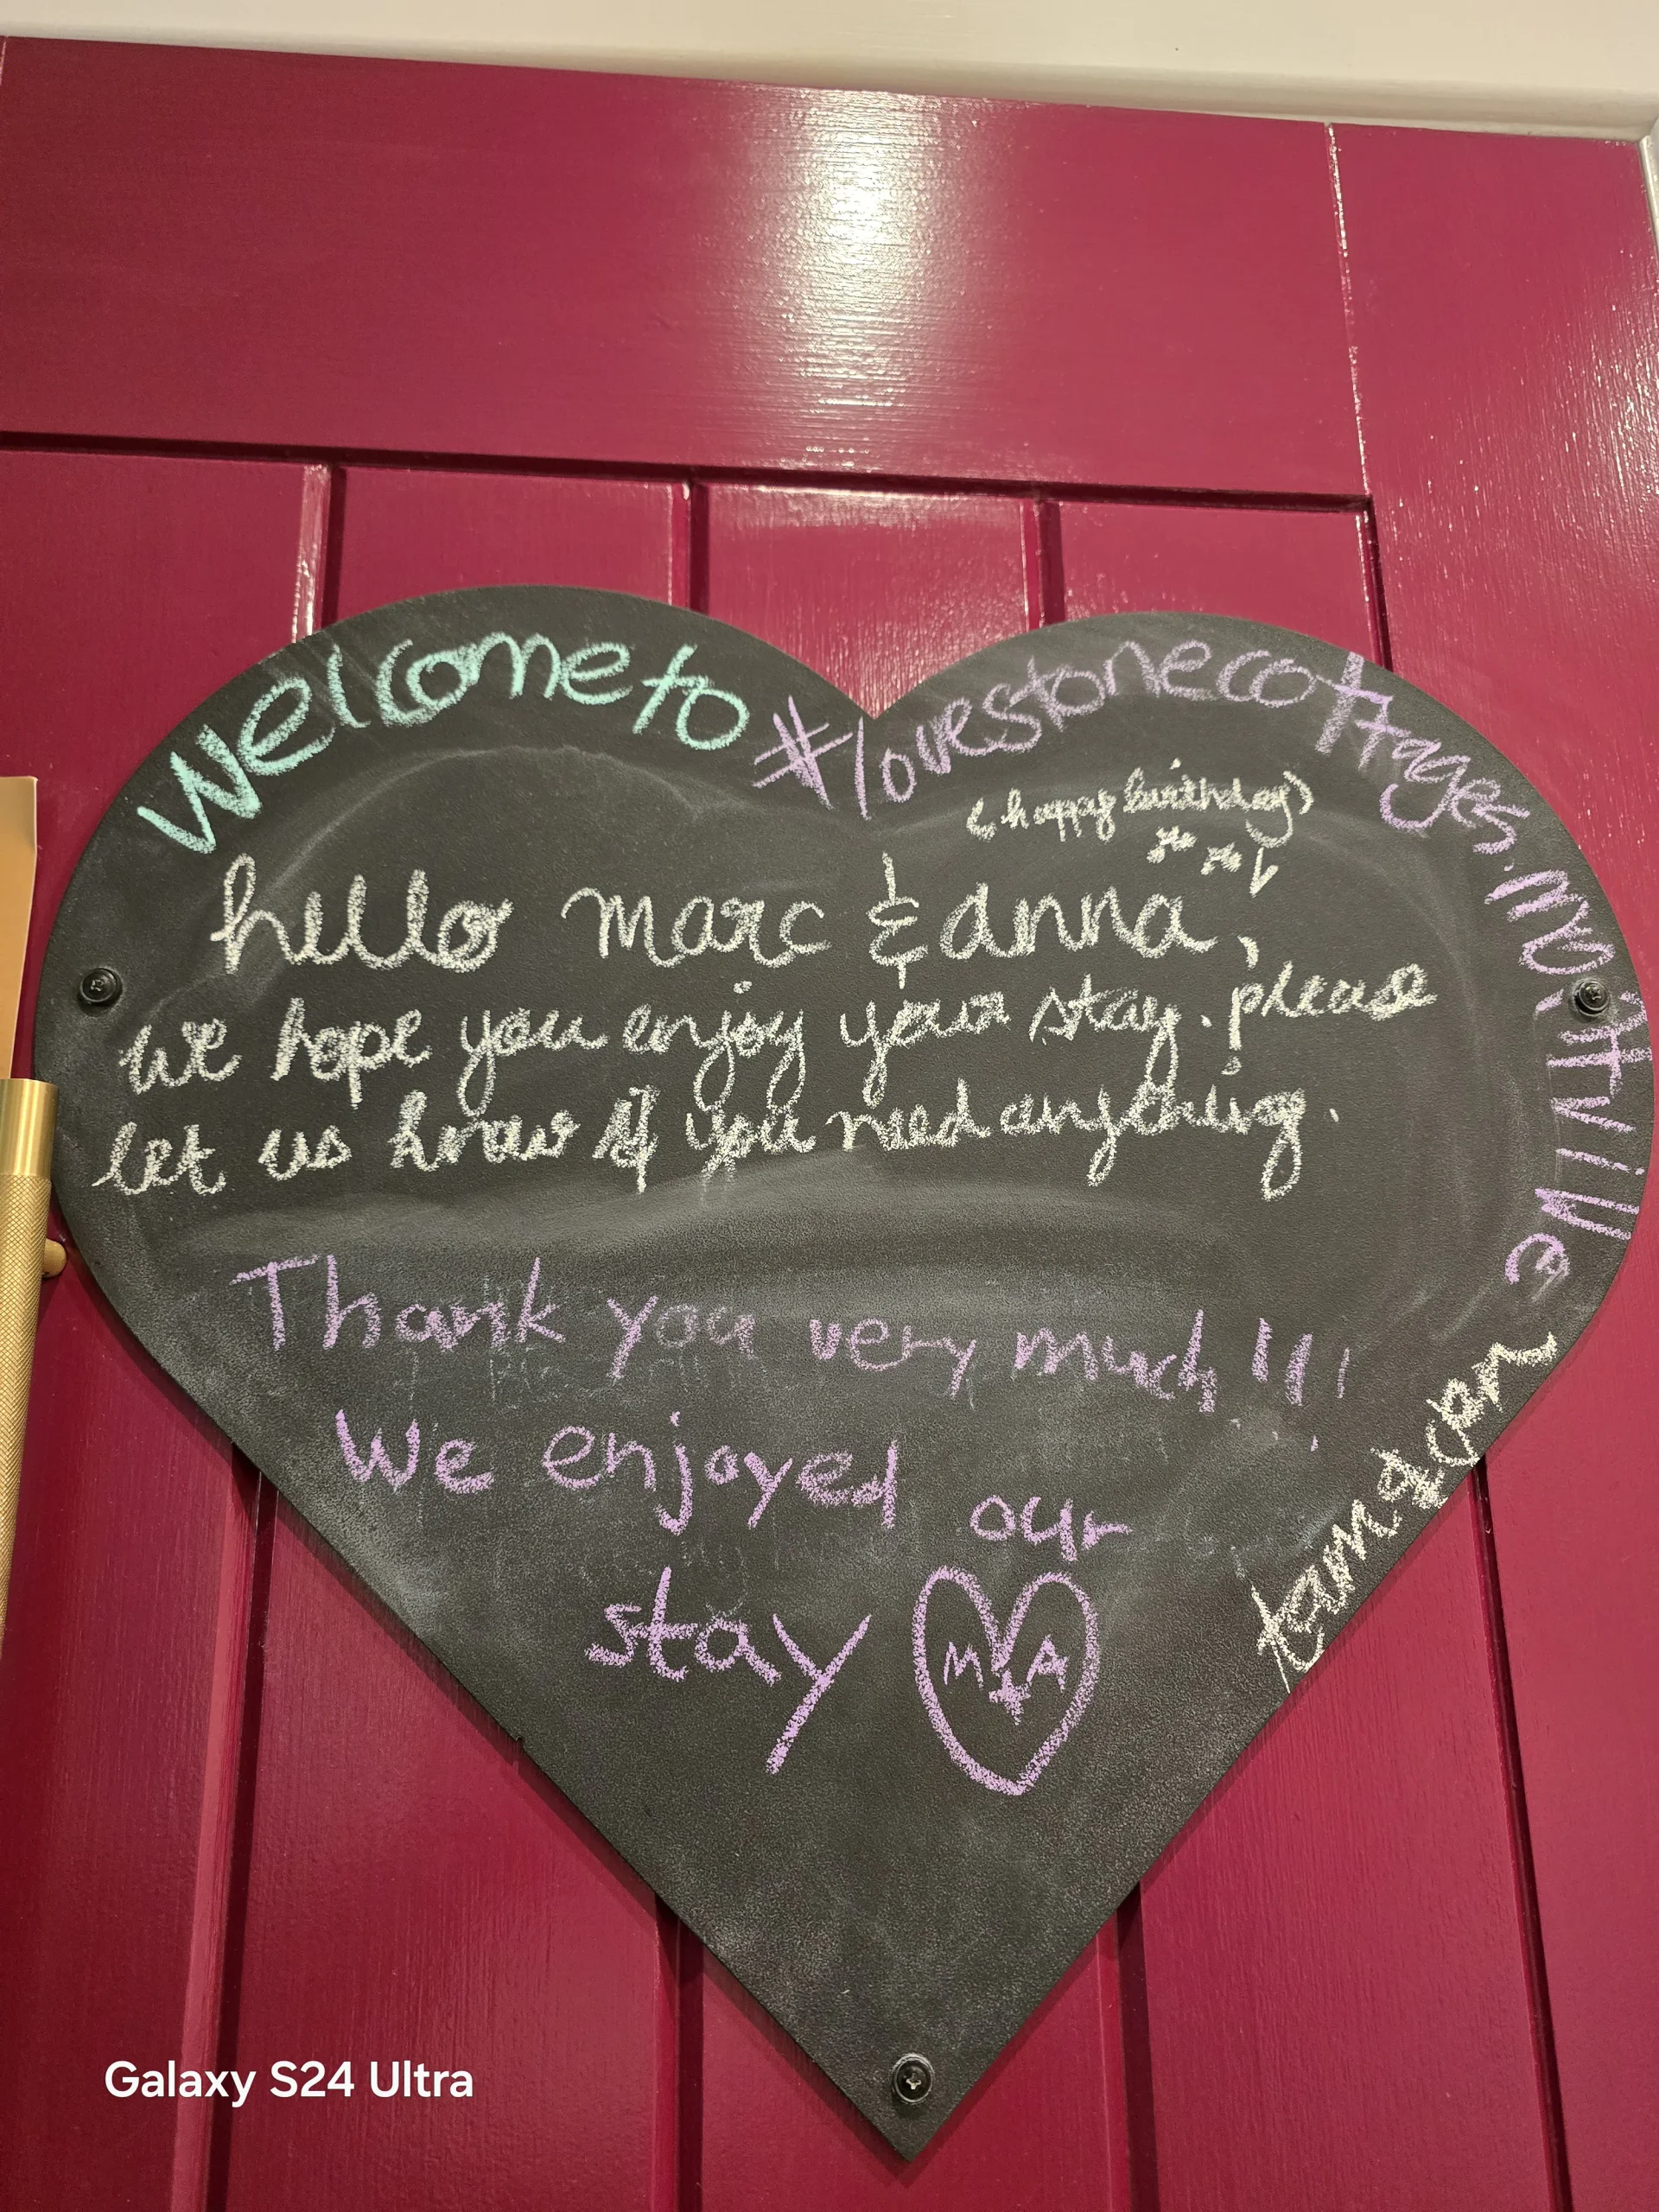 Welcome to #lovestonecottages.mortville
(happy birthday)
hello marc & anna,
we hope you enjoy your stay. please
let us know if you need anything.
Thank you very much!!!
We enjoyed our
stay
M+A
tam & dan
Galaxy S24 Ultra